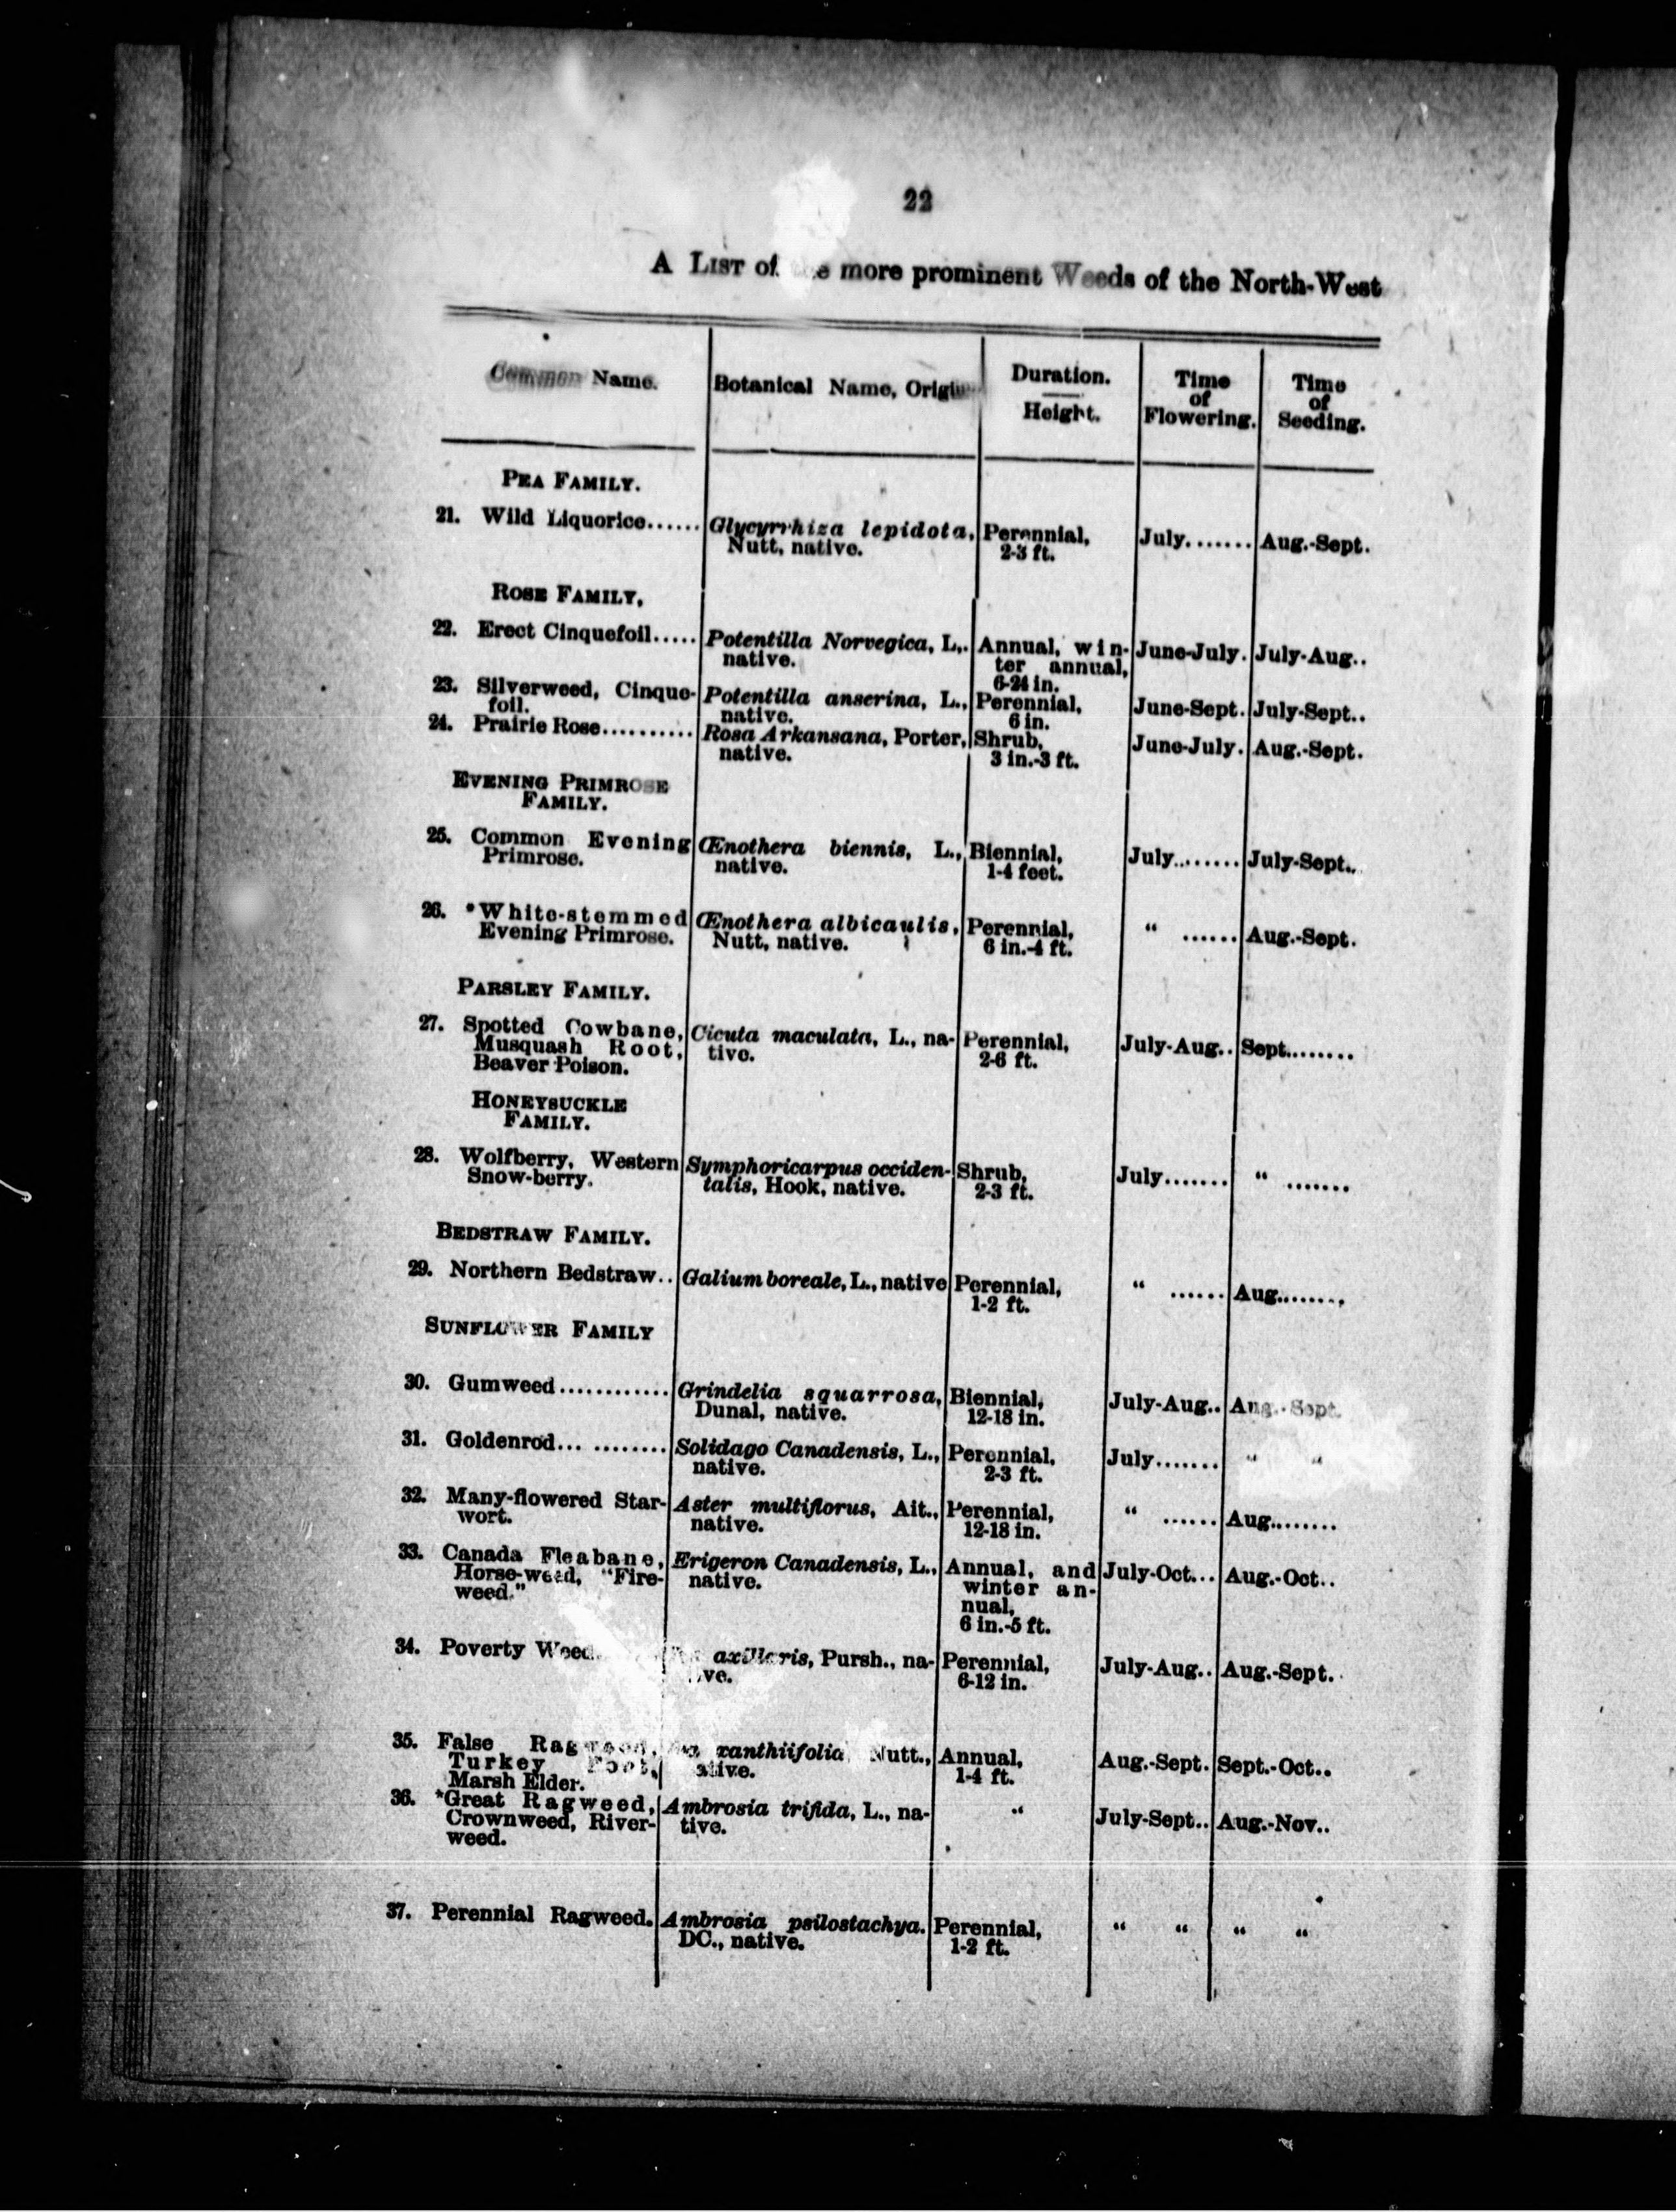 22
A List of more prominent Weeds of the North-West
Common Name.
Botanical Name, Origin
Duration.
Height.
Time
of
Flowering.
Time
of
Seeding.
PEA FAMILY.
21. Wild Liquorice...... Glycyrrhiza lepidota, Perennial, July....... Aug.-Sept.
Nutt, native. 2-3 ft.
ROSE FAMILY,
22. Erect Cinquefoil..... Potentilla Norvegica, L,. Annual, win- June-July. July-Aug..
native. ter annual,
6-24 in.
23. Silverweed, Cinque- Potentilla anserina, L., Perennial, June-Sept. July-Sept..
foil. native. 6 in.
24. Prairie Rose.......... Rosa Arkansana, Porter, Shrub, June-July. Aug.-Sept.
native. 3 in.-3 ft.
EVENING PRIMROSE
FAMILY.
25. Common Evening Œnothera biennis, L., Biennial, July........ July-Sept..
Primrose. native. 1-4 feet.
26. *White-stemmed Œnothera albicaulis, Perennial, " ...... Aug.-Sept.
Evening Primrose. Nutt, native. 6 in.-4 ft.
PARSLEY FAMILY.
27. Spotted Cowbane, Cicuta maculata, L., na- Perennial, July-Aug.. Sept........
Musquash Root, tive. 2-6 ft.
Beaver Poison.
HONEYSUCKLE
FAMILY.
28. Wolfberry, Western Symphoricarpus occiden- Shrub, July....... " .......
Snow-berry. talis, Hook, native. 2-3 ft.
BEDSTRAW FAMILY.
29. Northern Bedstraw.. Galium boreale, L., native Perennial, " ...... Aug........
1-2 ft.
SUNFLOWER FAMILY
30. Gumweed............ Grindelia squarrosa, Biennial, July-Aug.. Aug.-Sept.
Dunal, native. 12-18 in.
31. Goldenrod... ........ Solidago Canadensis, L., Perennial, July....... " "
native. 2-3 ft.
32. Many-flowered Star- Aster multiflorus, Ait., Perennial, " ...... Aug........
wort. native. 12-18 in.
33. Canada Fleabane, Erigeron Canadensis, L., Annual, and July-Oct... Aug.-Oct..
Horse-weed, "Fire- native. winter an-
weed." nual,
6 in.-5 ft.
34. Poverty Weed. axillaris, Pursh., na- Perennial, July-Aug.. Aug.-Sept.
6-12 in.
35. False Ragweed, xanthiifolia, Nutt., Annual, Aug.-Sept. Sept.-Oct..
Turkey Foot, native. 1-4 ft.
Marsh Elder.
36. *Great Ragweed, Ambrosia trifida, L., na- " July-Sept.. Aug.-Nov..
Crownweed, River- tive.
weed.
37. Perennial Ragweed. Ambrosia psilostachya. Perennial, " " " "
DC., native. 1-2 ft.